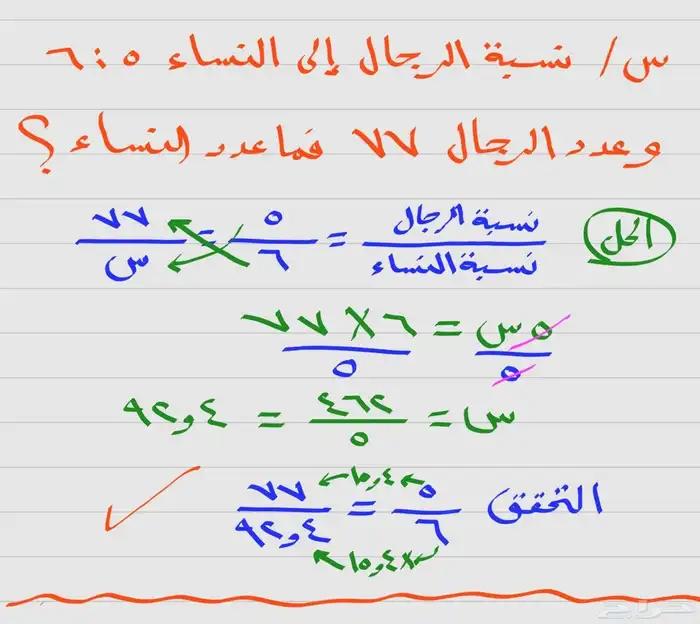 س/ نسبة الرجال إلى النساء ٥ : ٦
وعدد الرجال ٧٧ فما عدد النساء ؟
الحل
نسبة الرجال / نسبة النساء = ٥ / ٦ = ٧٧ / س
٥ س / ٥ = ٦ × ٧٧ / ٥
س = ٤٦٢ / ٥ = ٩٢,٤
التحقق ٥ / ٦ = ٧٧ / ٩٢,٤
×١٥,٤
×١٥,٤
حراج